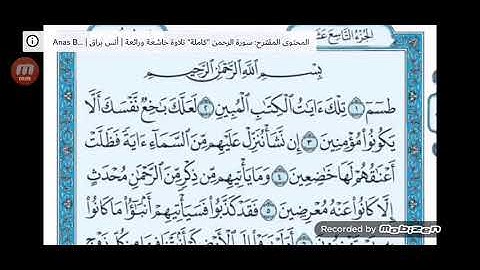 الجزء التاسع عشر
المحتوى المقترح: سورة الرحمن "كاملة" تلاوة خاشعة ورائعة | أنس براق | Anas B...
بِسْمِ اللَّهِ الرَّحْمَٰنِ الرَّحِيمِ
طسٓمٓ ١ تِلْكَ ءَايَٰتُ ٱلْكِتَٰبِ ٱلْمُبِينِ ٢ لَعَلَّكَ بَٰخِعٌ نَّفْسَكَ أَلَّا
يَكُونُوا۟ مُؤْمِنِينَ ٣ إِن نَّشَأْ نُنَزِّلْ عَلَيْهِم مِّنَ ٱلسَّمَآءِ ءَايَةً فَظَلَّتْ
أَعْنَٰقُهُمْ لَهَا خَٰضِعِينَ ٤ وَمَا يَأْتِيهِم مِّن ذِكْرٍ مِّنَ ٱلرَّحْمَٰنِ مُحْدَثٍ
إِلَّا كَانُوا۟ عَنْهُ مُعْرِضِينَ ٥ فَقَدْ كَذَّبُوا۟ فَسَيَأْتِيهِمْ أَنۢبَٰٓؤُا۟ مَا كَانُوا۟
Recorded by
mobizen